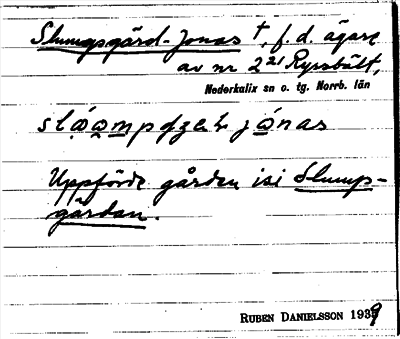 Slumpsgård-Jonas †, f. d. ägare
av nr 2²¹ Ryssbält,
Nederkalix sn o. tg. Norrb. län
jonas
Uppförde gården isi Slumps-
gårdan.
RUBEN DANIELSSON 1939